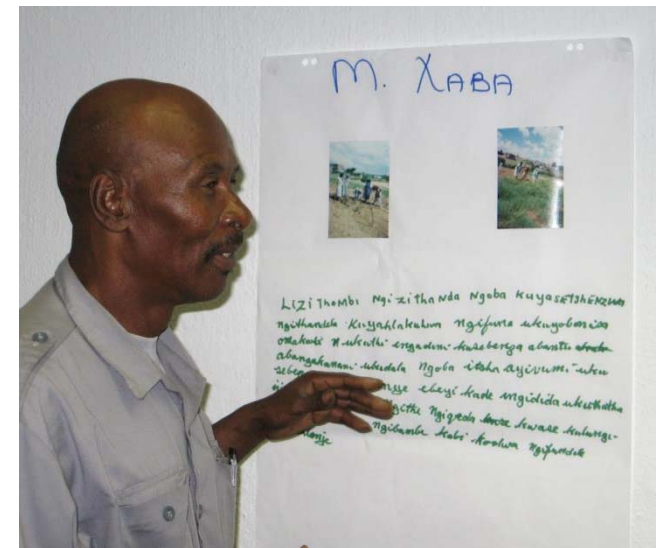 M. XABA
LIZI ThoMbi Ngizithanda Ngoba Kuyasetshenzwa
ngithandela Kuyahlakulwa ngifuna ukuyobonisa
ukuthi engadini kusebenza abantu
abangakanani ukudala Ngoba itsha ayivumi uku
seben
ebeyi kade ingidida ukuthatha
ngithi Ngiqeda kwase kulungi-
nje ngibambe kabi kodwa Ngifundile